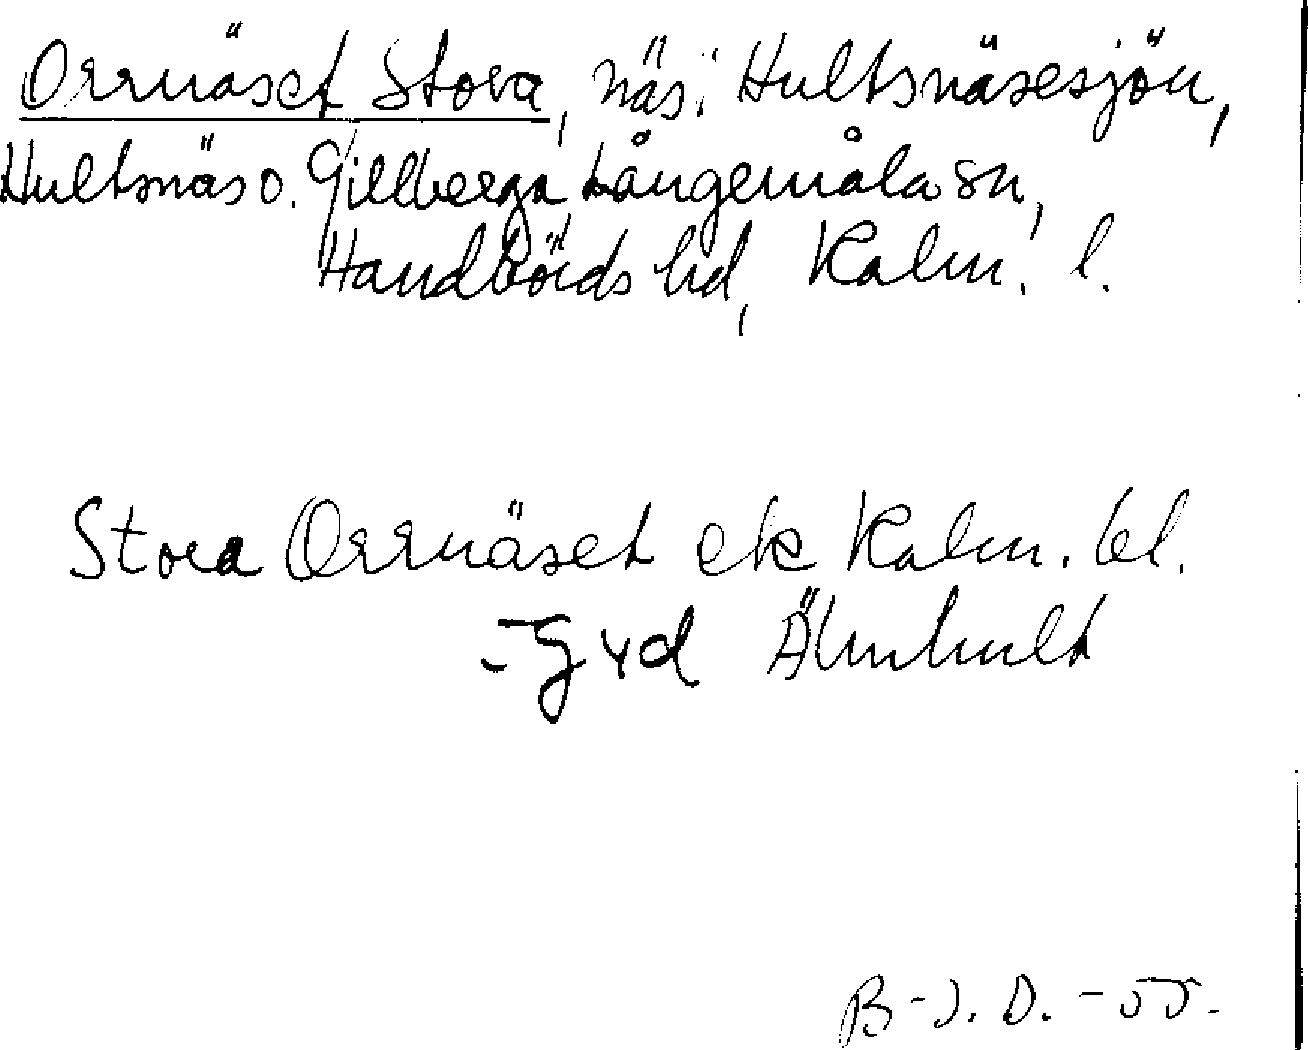 Orrnäset Stora, näs i Hultsnäsesjön,
Hultsnäs o. Gillberga, Långemåla sn,
Handbörds hd, Kalm. l.
Stora Orrnäset ek Kalm. bl.
Älmhult
B-J. D. -55.